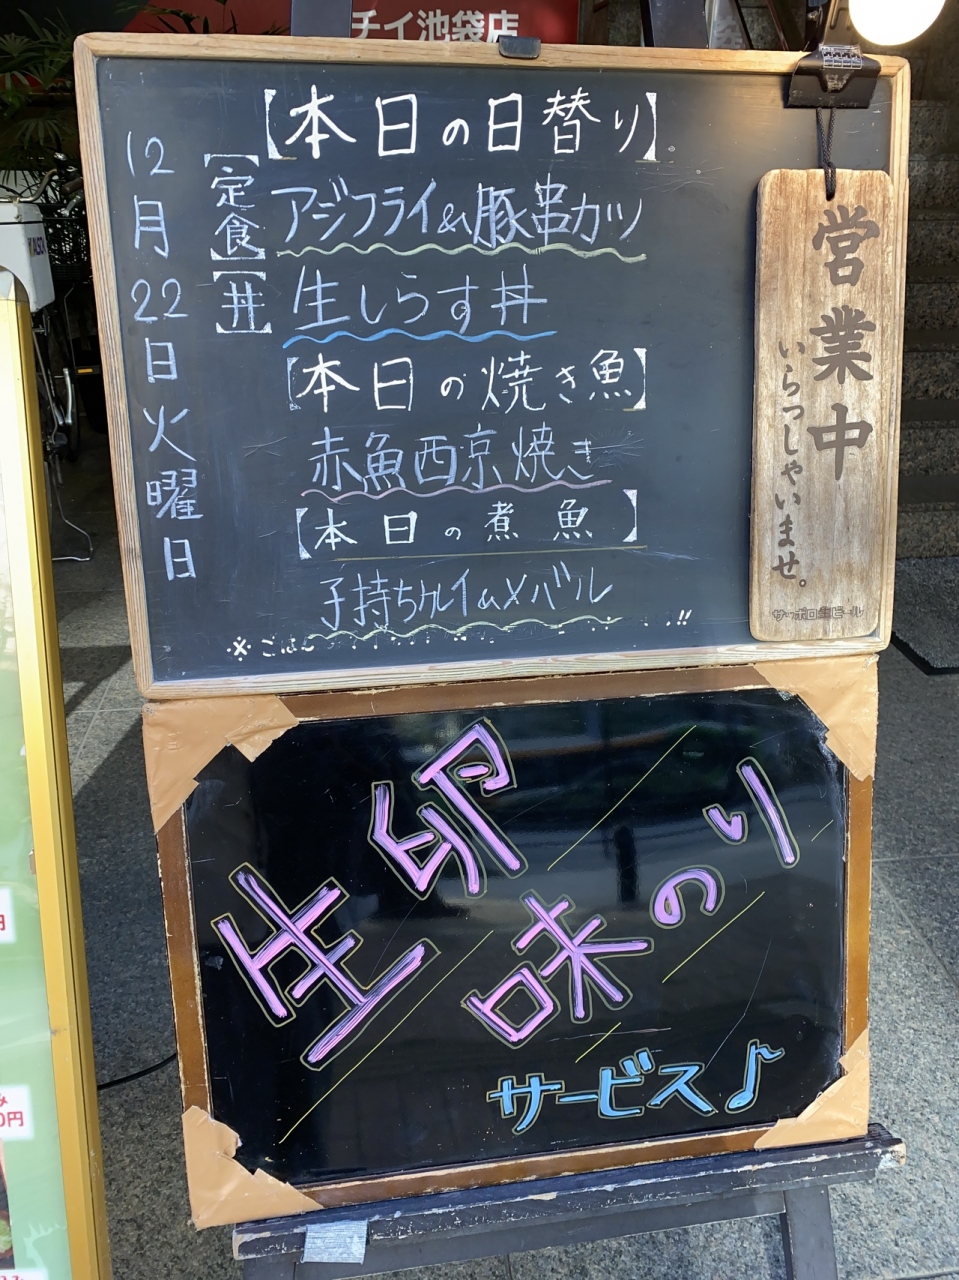 チイ池袋店
【本日の日替り】
12月22日火曜日
【定食】アジフライ&豚串カツ
【丼】生しらす丼
【本日の焼き魚】
赤魚西京焼き
【本日の煮魚】
子持ちカレイ&メバル
※ごはん
!!
営業中
いらっしゃいませ。
サッポロ生ビール
生卵
味のり
サービス♪
円
み
0円